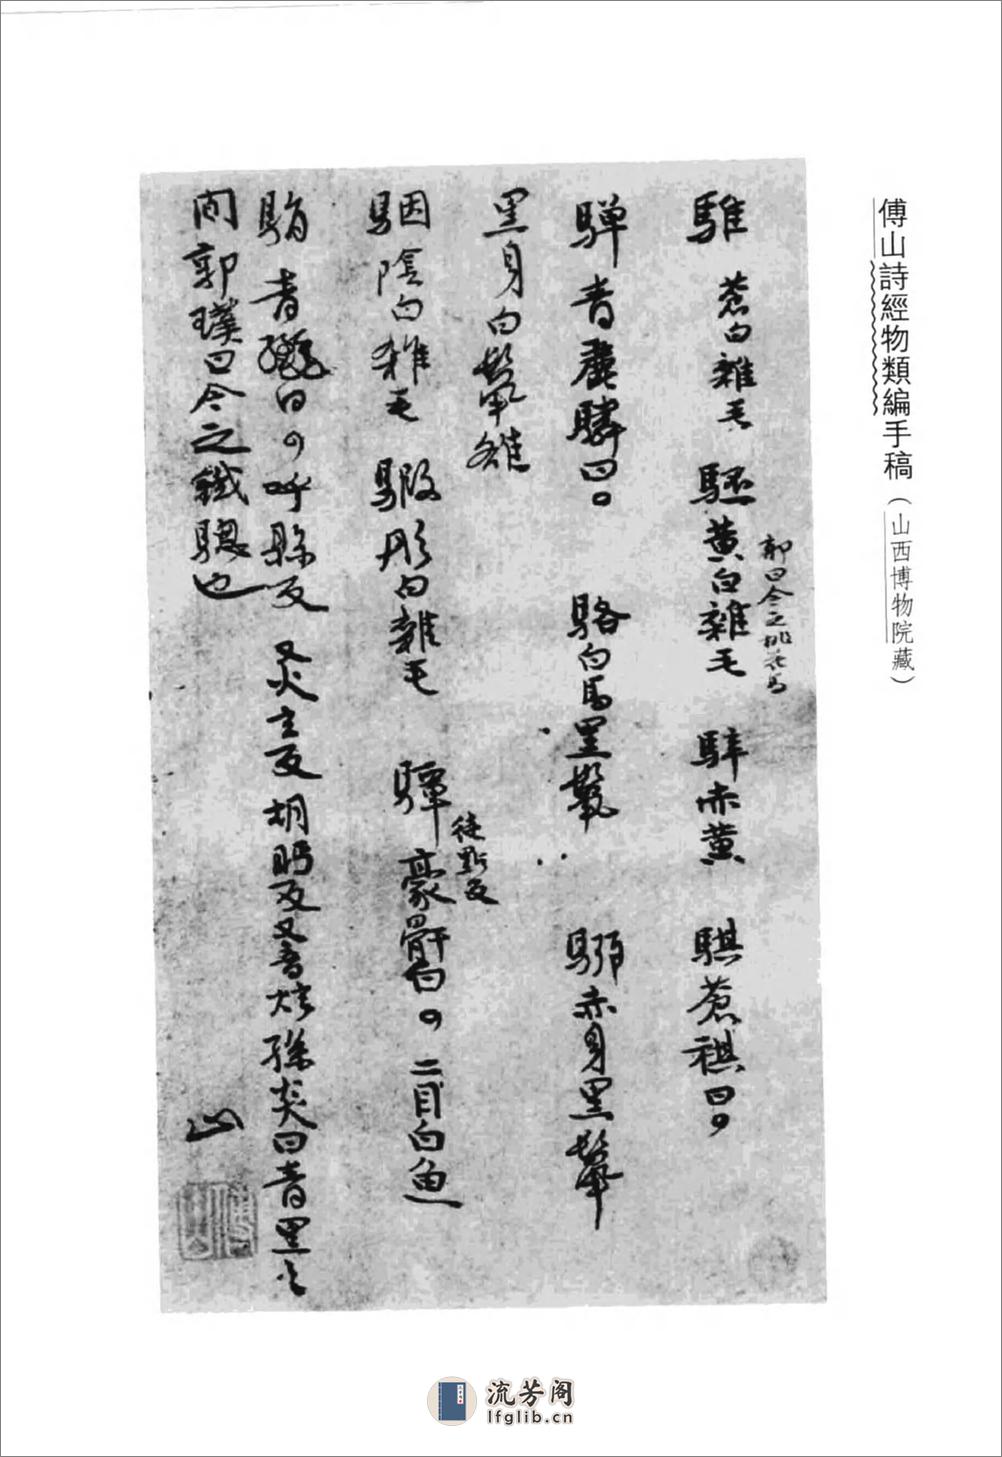 傅山詩經物類編手稿（山西博物院藏）
騅 蒼白雜毛 駓黃白雜毛 騂赤黃 騏蒼祺曰。
郭曰今之桃花馬
驒青驪驎曰。 駱白馬黑鬣 騮赤身黑鬣
黑身白鬣雒
駰陰白雜毛 騢彤白雜毛 驔豪骭白。二目白魚
徒點反
駽 青驪曰。呼縣反 又火玄反 胡眄反又音炫孫炎曰青黑之
間郭璞曰今之鐵驄也
山
流芳阁
lfglib.cn